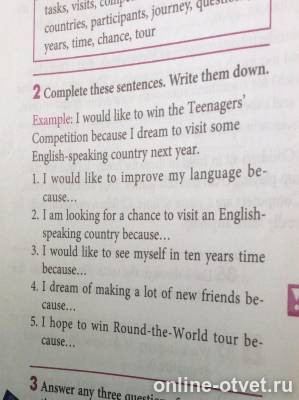 tasks, visits,
countries, participants, journey,
years, time, chance, tour
2 Complete these sentences. Write them down.
Example: I would like to win the Teenagers'
Competition because I dream to visit some
English-speaking country next year.
1. I would like to improve my language be-
cause...
2. I am looking for a chance to visit an English-
speaking country because...
3. I would like to see myself in ten years time
because...
4. I dream of making a lot of new friends be-
cause...
5. I hope to win Round-the-World tour be-
cause...
3 Answer any three
online-otvet.ru